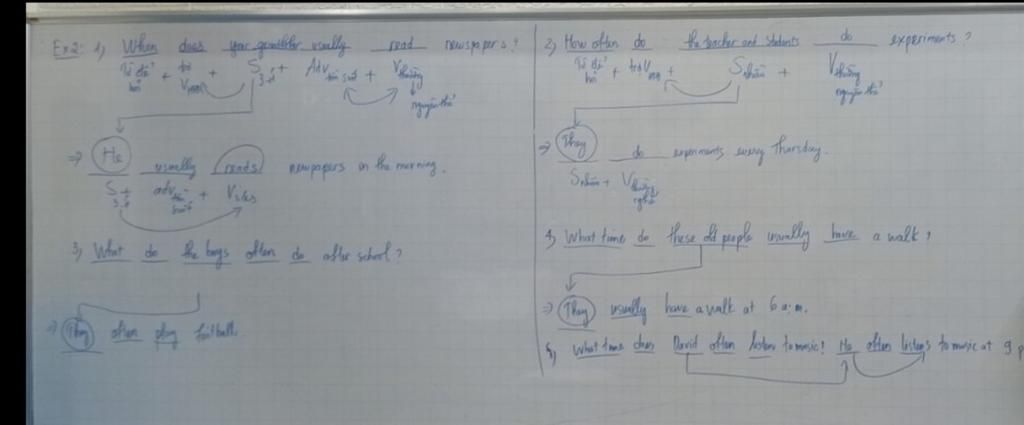 Ex2: 1, When does your grandfather usually read newspapers?
Từ để hỏi + trợ V + S 3 + Adv tần suất + V thường nguyên thể
=> He usually reads newpapers in the morning.
S + adv tần suất + V s/es
3, What do the boys often do after school?
=> They often play football.
2, How often do the teacher and students do experiments?
Từ để hỏi + trợ V + S nhiều + V thường nguyên thể
=> They do experiments every Thursday.
S nhiều + V thường
4, What time do these old people usually have a walk?
=> They usually have a walk at 6 a.m.
5, What time does David often listen to music? He often listens to music at 9 p